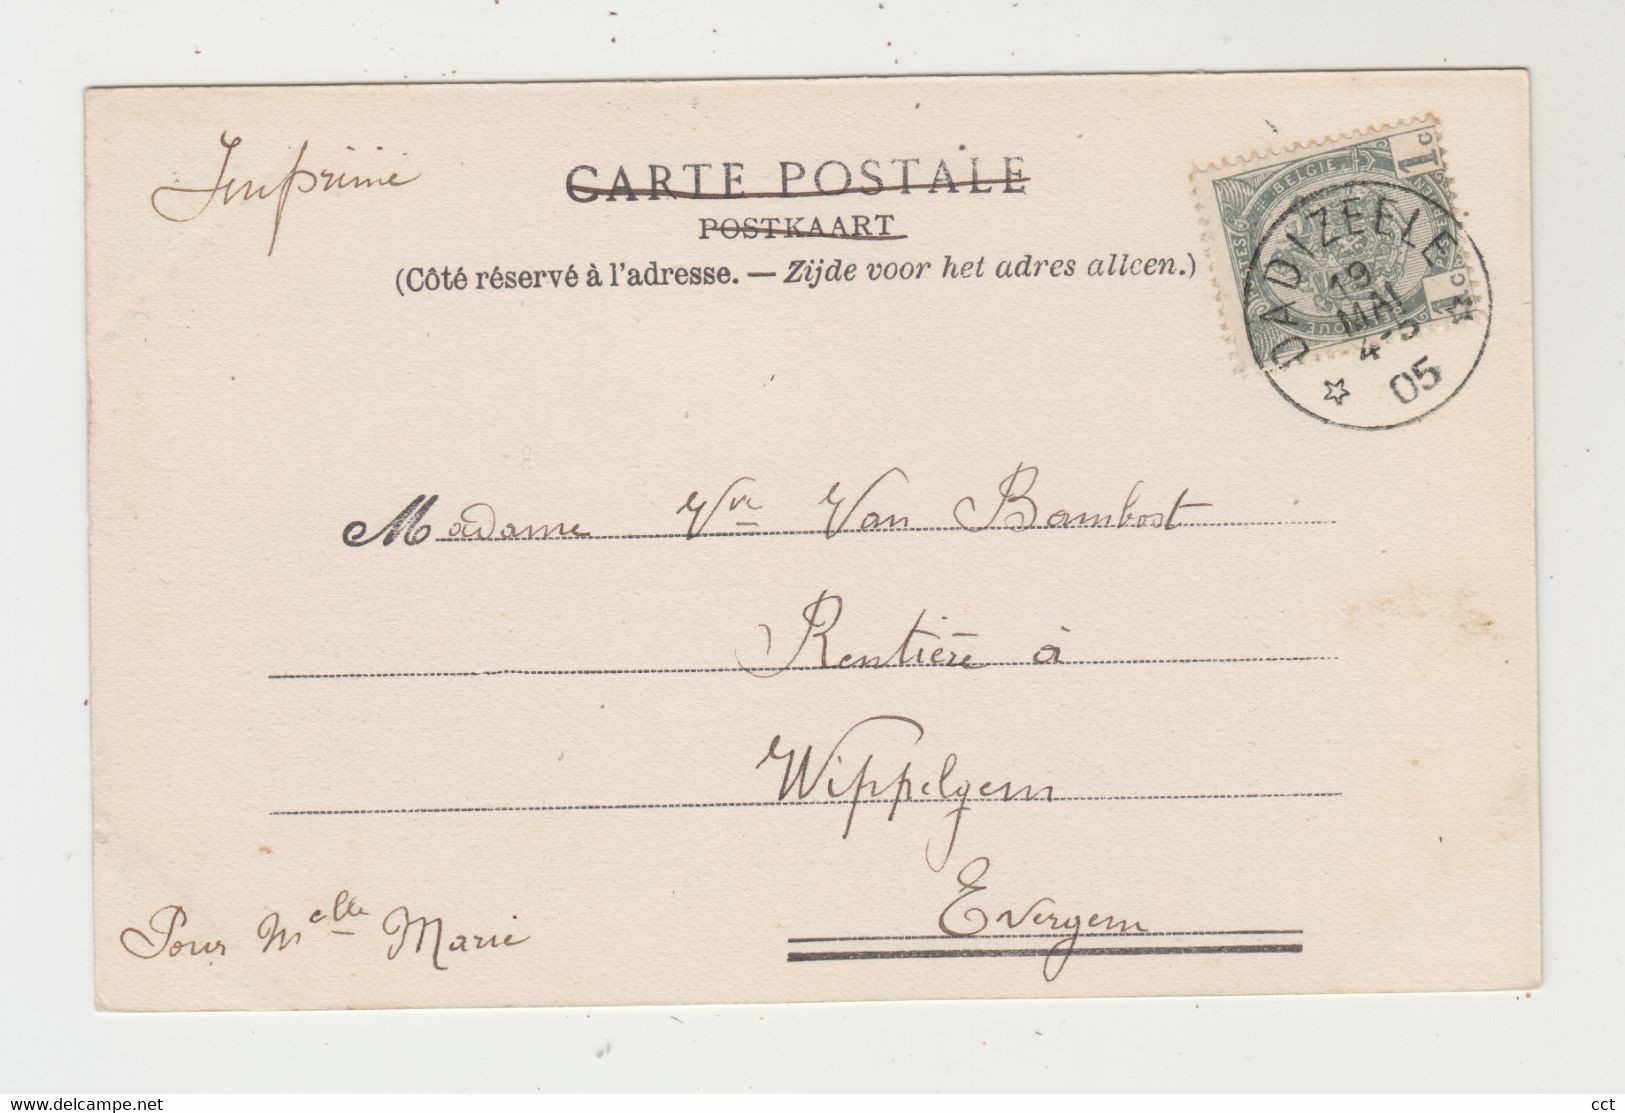 Imprimé
CARTE POSTALE
POSTKAART
(Côté réservé à l'adresse. — Zijde voor het adres alleen.)
BELGIE
1 C
1 C
BELGIQUE
DADIZEELE
19
MAI
4-5
05
Madame Vve Van Bambost
Rentière à
Wippelgem
Evergem
Pour Melle Marie
cct